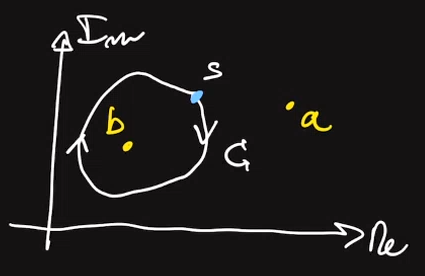 Im
s
b
a
C
Re